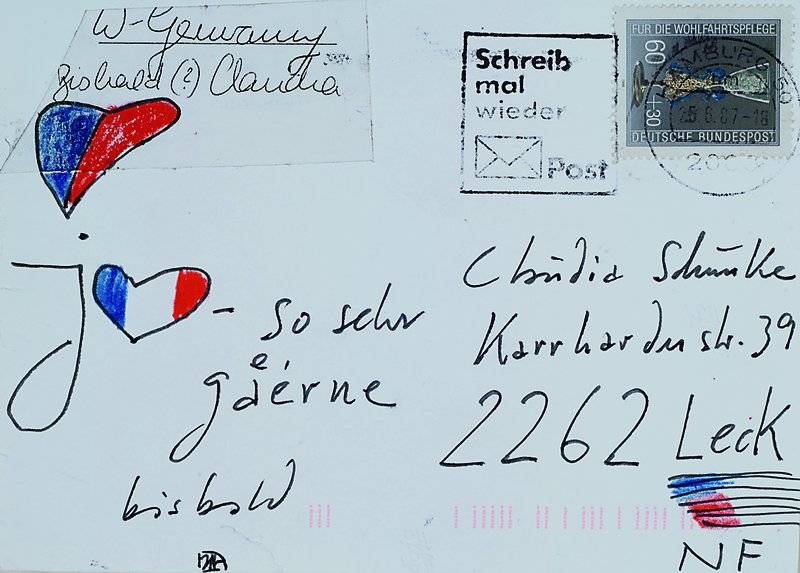 W-Germany
bisbald (?) Claudia
Schreib
mal
wieder
Post
FÜR DIE WOHLFAHRTSPFLEGE
60
+30
DEUTSCHE BUNDESPOST
HAMBURG
25.6.87-18
j
so sehr
e
gaérne
bis bald
Claudia Schunke
Karrharder str. 39
2262 Leck
NF